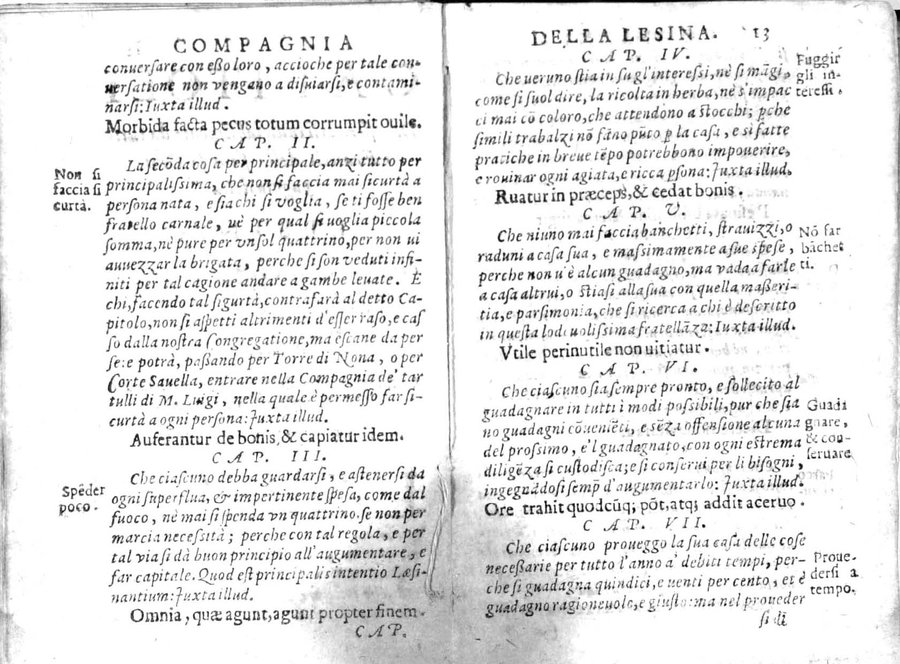 COMPAGNIA
conuersare con eßo loro, accioche per tale con-
uersatione non vengano a disuiarsi, e contami-
narsi: Iuxta illud.
Morbida facta pecus totum corrumpit ouile.
CAP. II.
Non si
faccia si
curtà.
La secōda cosa per principale, anzi tutto per
principalissima, che non si faccia mai sicurtà a
persona nata, e sia chi si voglia, se ti fosse ben
fratello carnale, nè per qual si uoglia piccola
somma, nè pure per vn sol quattrino, per non ui
auuezzar la brigata, perche si son veduti infi-
niti per tal cagione andare a gambe leuate. E
chi, facendo tal sigurtà, contrafarà al detto Ca-
pitolo, non si aspetti altrimenti d'esser raso, e cas
so dalla nostra Congregatione, ma escane da per
se: e potrà, paßando per Torre di Nona, o per
Corte Sauella, entrare nella Compagnia de' tar
tulli di M. Luigi, nella quale è permesso far si-
curtà a ogni persona: Iuxta illud.
Auferantur de bonis, & capiatur idem.
CAP. III.
Spēder
poco.
Che ciascuno debba guardarsi, e astenersi da
ogni superflua, & impertinente spesa, come dal
fuoco, nè mai si spenda vn quattrino se non per
marcia necessità; perche con tal regola, e per
tal via si dà buon principio all'augumentare, e
far capitale. Quod est principalis intentio Læsi-
nantium: Iuxta illud.
Omnia, quæ agunt, agunt propter finem.
CAP.
DELLA LESINA. 13
CAP. IV.
Fuggir
gli in-
teressi.
Che ueruno stia in su gl'interessi, nè si māgi,
come si suol dire, la ricolta in herba, nè s'impac
ci mai cō coloro, che attendono a stocchi; ꝑche
simili trabalzi nō fāno pūto ꝑ la casa, e si fatte
pratiche in breue tēpo potrebbono impouerire,
e rouinar ogni agiata, e ricca ꝑsona: Iuxta illud.
Ruatur in præceps, & cedat bonis.
CAP. V.
Nō far
bāchet
ti.
Che niuno mai faccia banchetti, strauizzi, o
raduni a casa sua, e massimamente a sue spese,
perche non u'è alcun guadagno, ma vada a farle
a casa altrui, o stiasi alla sua con quella maßeri-
tia, e parsimonia, che si ricerca a chi è descritto
in questa lodeuolissima fratellāza: Iuxta illud.
Vtile per inutile non uitiatur.
CAP. VI.
Guada
gnare,
& con-
seruare
Che ciascuno sia sempre pronto, e sollecito al
guadagnare in tutti i modi possibili, pur che sia
no guadagni cōueniēti, e sēza offensione alcuna
del prossimo, e'l guadagnato, con ogni estrema
diligēza si custodisca; e si conserui per li bisogni,
ingegnādosi semp̄ d'augumentarlo: Iuxta illud.
Ore trahit quodcūq; pōt, atq; addit aceruo.
CAP. VII.
Proue-
dersi a
tempo.
Che ciascuno proueggo la sua casa delle cose
neceßarie per tutto l'anno a' debiti tempi, per-
che si guadagna quindici, e uenti per cento, et è
guadagno ragioneuole, e giusto: ma nel proueder
si di